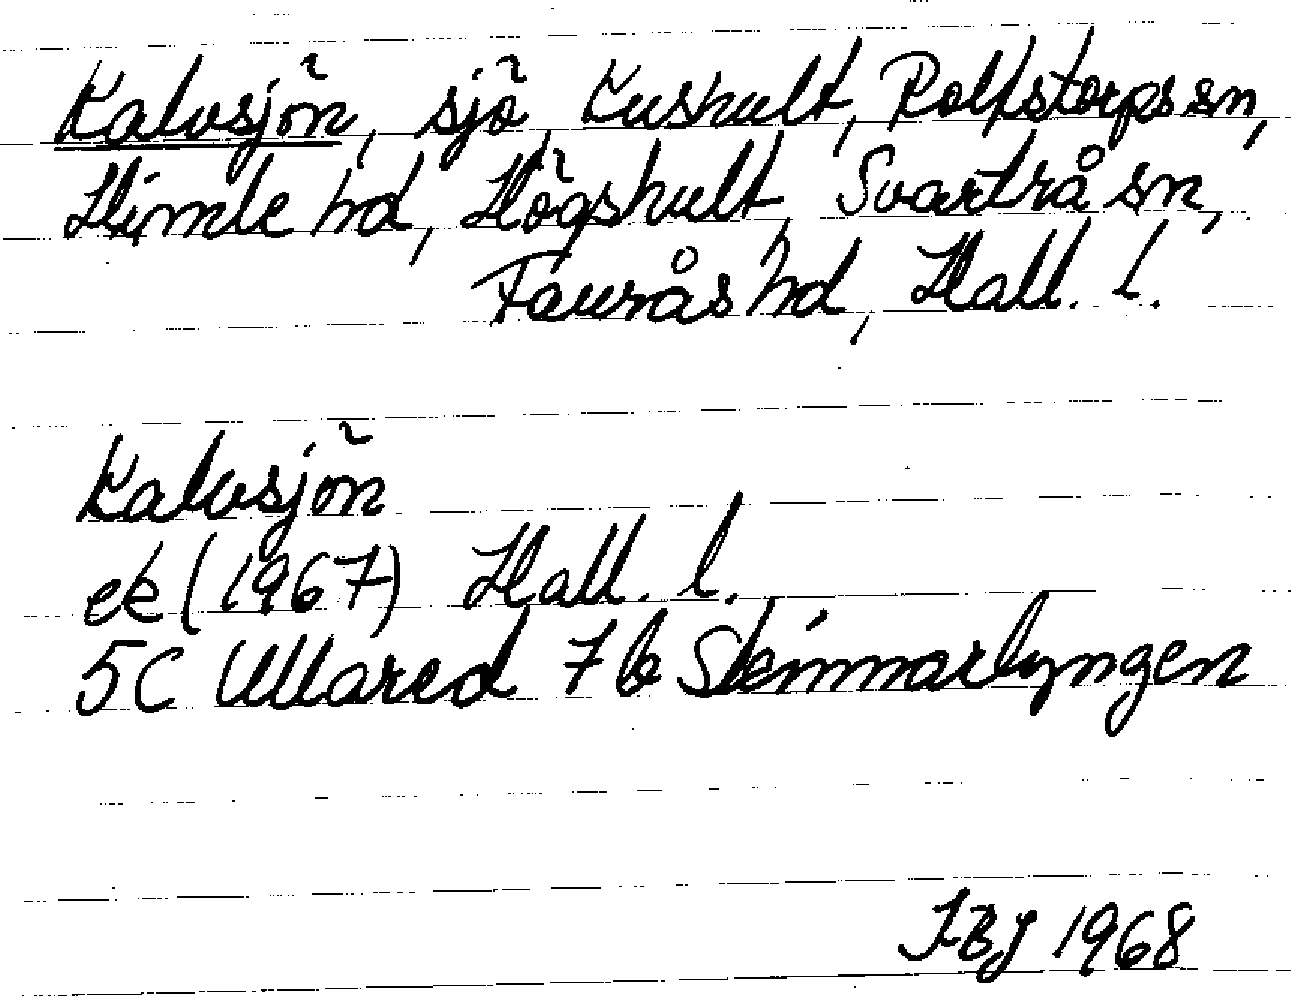 Kalvsjön, sjö, Kushult, Rolfstorps sn,
Himle hd, Högshult, Svartrå sn,
Faurås hd, Hall. l.
Kalvsjön
ek (1967) Hall. l.
5C Ullared 7b Stenmarlyngen
KBJ 1968